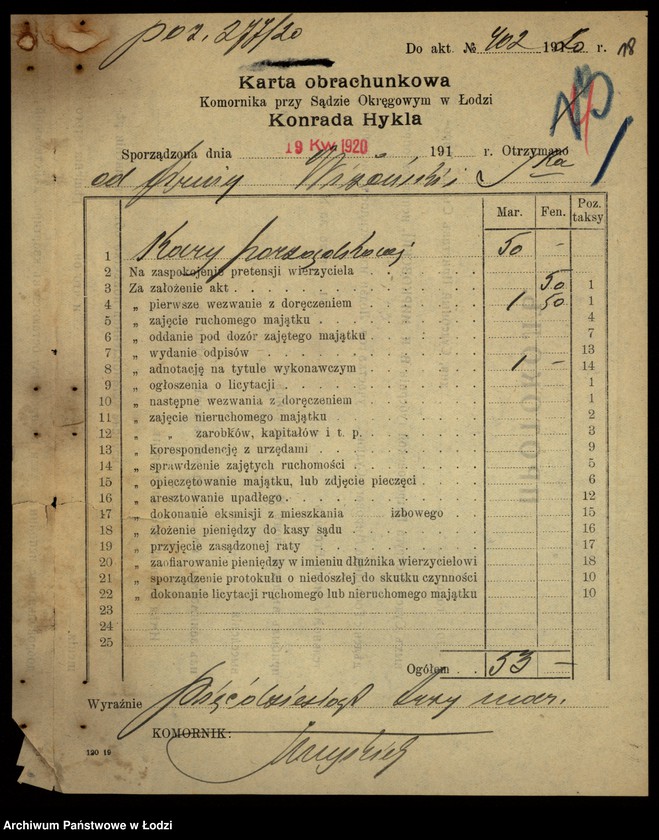 poz. 277/20
Do akt. № 402 1920 r. 18
Karta obrachunkowa
Komornika przy Sądzie Okręgowym w Łodzi
Konrada Hykla
Sporządzona dnia 19 Kw. 1920 191 r. Otrzymano
od firmy
Mar. Fen. Poz. taksy
1 Kary porządkowej 50 -
2 Na zaspokojenie pretensji wierzyciela
3 Za założenie akt 50 1
4 „ pierwsze wezwanie z doręczeniem 1 50 1
5 „ zajęcie ruchomego majątku 4
6 „ oddanie pod dozór zajętego majątku 7
7 „ wydanie odpisów 13
8 „ adnotację na tytule wykonawczym 1 - 14
9 „ ogłoszenia o licytacji 1
10 „ następne wezwania z doręczeniem 1
11 „ zajęcie nieruchomego majątku 2
12 „ „ zarobków, kapitałów i t. p. 3
13 „ korespondencję z urzędami 9
14 „ sprawdzenie zajętych ruchomości 5
15 „ opieczętowanie majątku, lub zdjęcie pieczęci 6
16 „ aresztowanie upadłego 12
17 „ dokonanie eksmisji z mieszkania izbowego 15
18 „ złożenie pieniędzy do kasy sądu 16
19 „ przyjęcie zasądzonej raty 17
20 „ zaofiarowanie pieniędzy w imieniu dłużnika wierzycielowi 18
21 „ sporządzenie protokułu o niedoszłej do skutku czynności 10
22 „ dokonanie licytacji ruchomego lub nieruchomego majątku 10
23
24
25
Ogółem 53 -
Wyraźnie pięćdziesiąt trzy mar.
KOMORNIK:
120 19
Archiwum Państwowe w Łodzi